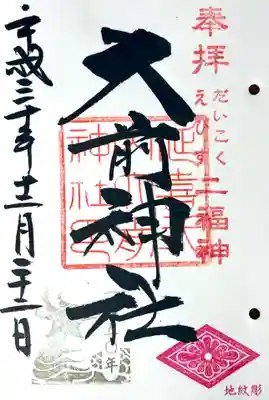 奉拝
だいこく
えびす
二福神
大前神社
平成三十年十二月二十二日
年
地紋彫